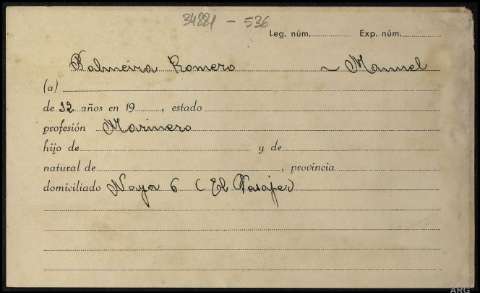 34221 - 536
Leg. núm. Exp. núm.
Palmeira Romero ~ Manuel
(a)
de 32 años en 19 , estado
profesión Marinero
hijo de y de
natural de , provincia
domiciliado Noya 6 (El Pasaje)
ARG